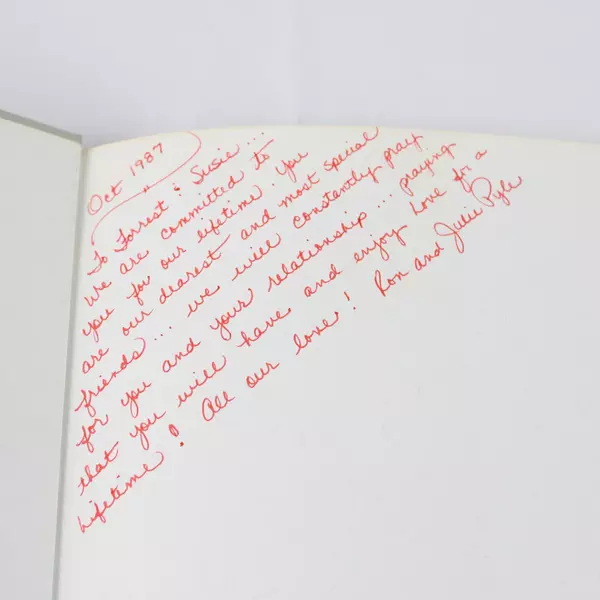 Oct 1987
To Forrest & Susie...
We are committed to
you for our lifetime. You
are our dearest and most special
friends... we will constantly pray
for you and your relationship... praying
that you will have and enjoy Love for a
Lifetime! All our love! Ron and Julie Pyle